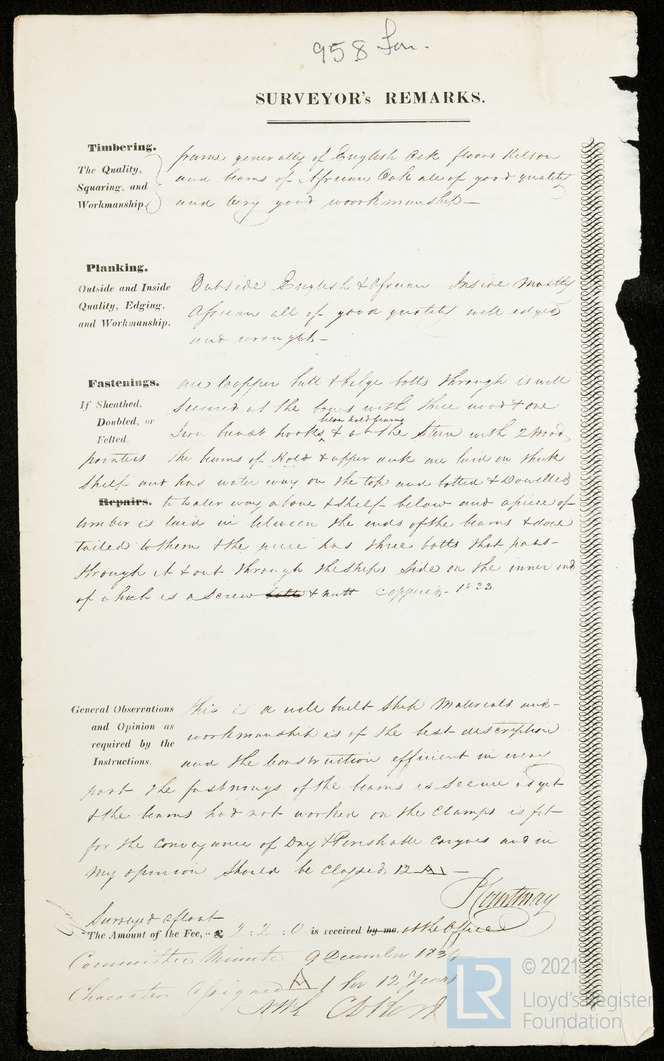 958 Lon.
SURVEYOR's REMARKS.
Timbering.
The Quality,
Squaring, and
Workmanship.
frame generally of English Oak floors Kelson
and beams of African Oak all of good quality
and very good workmanship —
Planking.
Outside and Inside
Quality, Edging,
and Workmanship.
Outside English & African Inside Mostly
African all of good quality well edged
and wrought —
Fastenings.
If Sheathed,
Doubled, or
Felted.
are Copper butt & bilge bolts through is well
secured at the bows with three wood & one
below hold beams
Iron breast hooks & at the Stern with 2 Wood
pointers the beams of Hold & upper deck are laid on thick
Shelf and has water way on the top and bolted & Dowelled
Repairs. to water way above & shelf below and a piece of
timber is laid in between the ends of the beams & dove
tailed to them & the piece has three bolts that pass
through it & out through the ships side on the inner end
of which is a screw bolt & nutt Coppered - 1833
General Observations
and Opinion as
required by the
Instructions.
this is a well built Ship Materials and
workmanship is of the best description
and the Construction efficient in every
part the fastnings of the beams is secure as yet
& the beams had not worked on the Clamps is fit
for the Conveyance of Dry & Perishable cargoes and in
my opinion should be Classed 12 A1 —
Surveyed afloat
The Amount of the Fee,.. £ 2 : 2 : 0 is received by me at the Office
Committee Minute 9 December 1834
Character assigned A1 for 12 Years
© 2021
LR
Lloyd's Register
Foundation